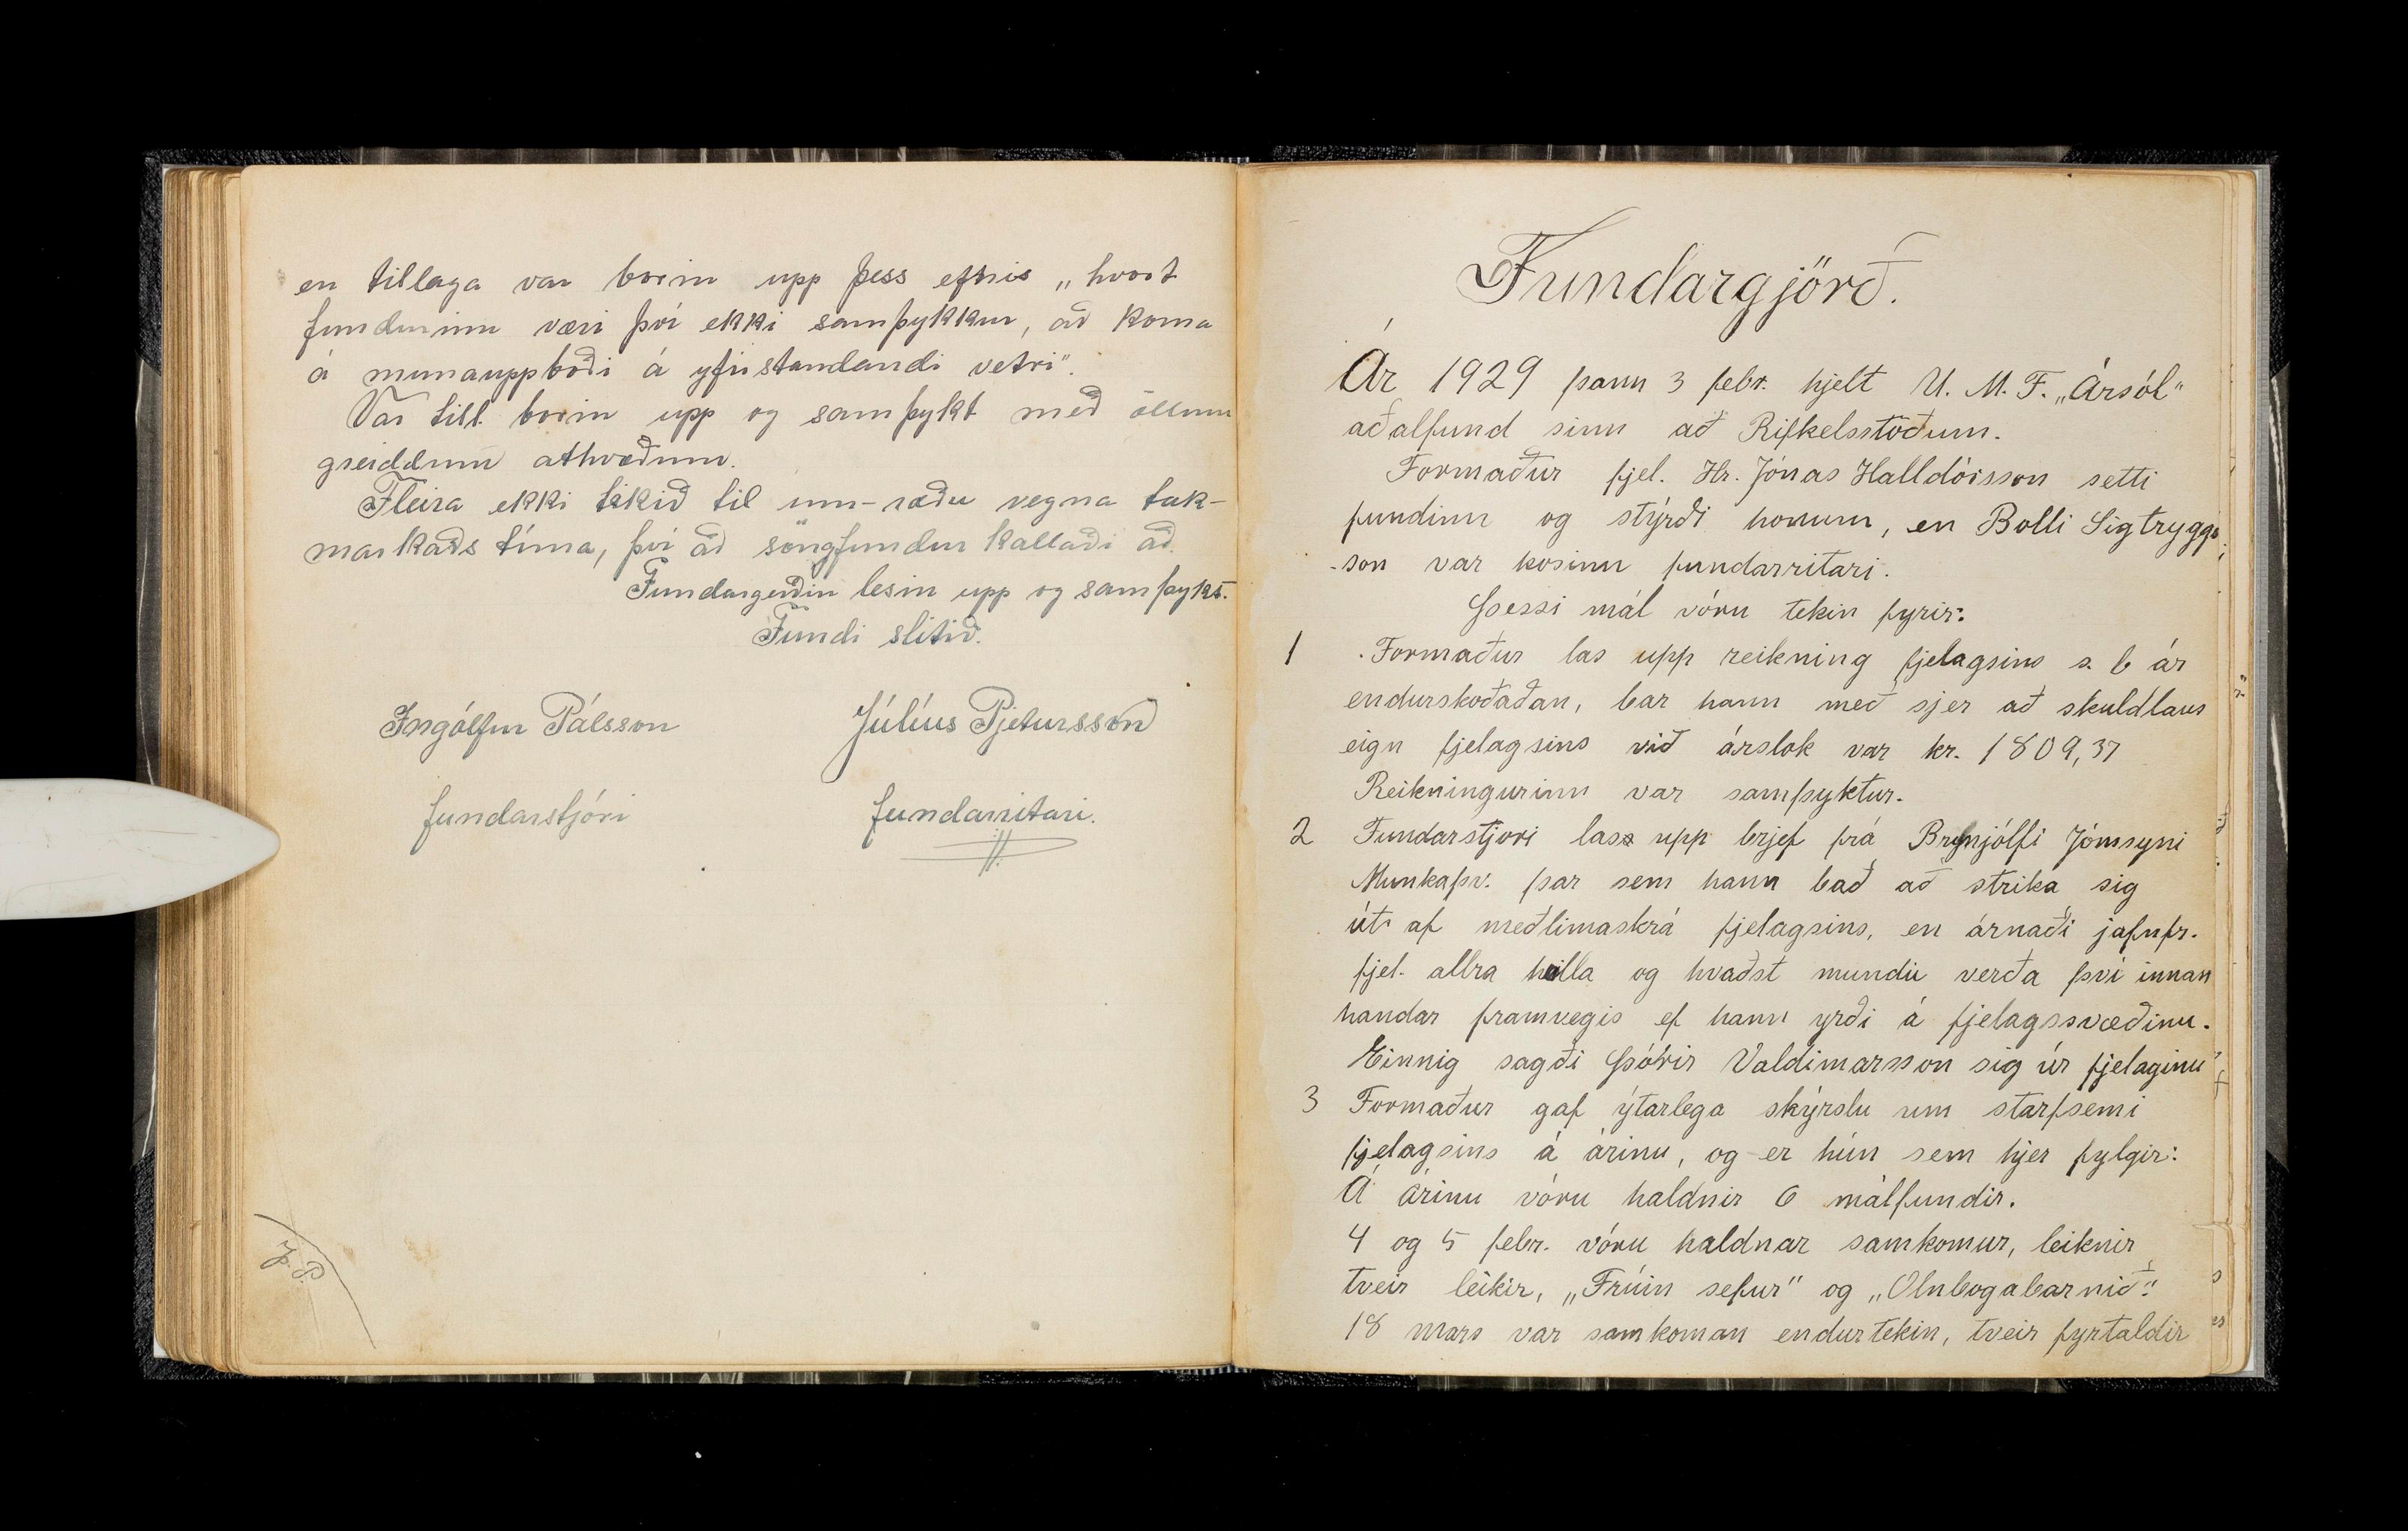 en tillaga var borin upp þess efnis „hvort
fundurinn væri því ekki samþykkur, að koma
á munauppboði á yfirstandandi vetri".
Var till. borin upp og samþykt með öllum
greiddum athvæðum.
Fleira ekki tekið til um-ræðu vegna tak-
markaðs tíma, því að söngfundur kallaði að.
Fundargerðin lesin upp og samþykt.
Fundi slitið.
Ingólfur Pálsson
Júlíus Pjetursson
fundarstjóri
fundarritari.
J. P.
Fundargjörð.
Ár 1929 þann 3 febr. hjelt U. M. F. „Ársól"
aðalfund sinn að Rifkelsstöðum.
Formaður fjel. Hr. Jónas Halldórsson setti
fundinn og stýrði honum, en Bolli Sigtryggs
-son var kosinn fundarritari.
Þessi mál vóru tekin fyrir:
1 Formaður las upp reikning fjelagsins s. l. ár
endurskoðaðan, bar hann með sjer að skuldlaus
eign fjelagsins við árslok var kr. 1809,37
Reikningurinn var samþyktur.
2 Fundarstjori las upp brjef frá Brynjólfi Jónsyni
Munkaþv. þar sem hann bað að strika sig
út af meðlimaskrá fjelagsins, en árnaði jafnfr.
fjel. allra heilla og hvaðst mundu verða því innan
handar framvegis ef hann yrði á fjelagssvæðinu.
Einnig sagði Þórir Valdimarsson sig úr fjelaginu
3 Formaður gaf ýtarlega skýrslu um starfsemi
fjelagsins á árinu, og er hún sem hjer fylgir:
Á árinu vóru haldnir 6 málfundir.
4 og 5 febr. vóru haldnar samkomur, leiknir
tveir leikir, „Frúin sefur" og „Olnbogabarnið".
18 mars var samkoman endurtekin, tveir fyrtaldir